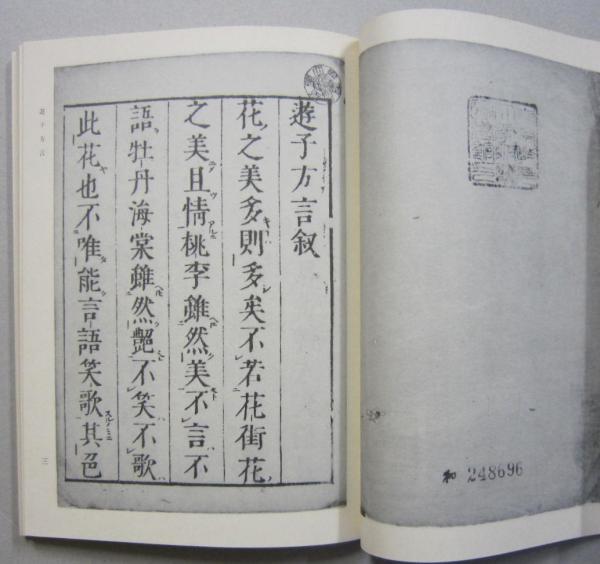 遊子方言叙
花之美多則多矣不若花街花
之美且情桃李雖然美不言不
語牡丹海棠雖然艶不笑不歌
此花也不唯能言語笑歌其色
遊子方言
三
和 248696